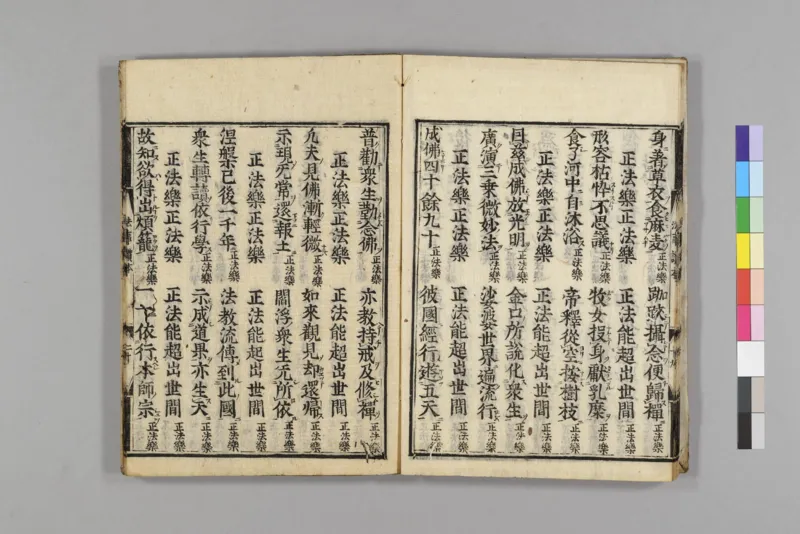 身著草衣食麻麦正法樂 跏趺攝念便歸禪正法樂
正法樂正法樂 正法能超出世間正法樂
形容枯悴不思議正法樂 牧女授身獻乳糜正法樂
食了河中自沐浴正法樂 帝釋從空按樹枝正法樂
正法樂正法樂 正法能超出世間正法樂
目茲成佛放光明正法樂 金口所說化衆生正法樂
廣演三乗微妙法正法樂 娑婆世界遍流行正法樂
正法樂正法樂 正法能超出世間正法樂
成佛四十餘九十正法樂 彼國經行遊五天正法樂
普勸衆生勤念佛正法樂 亦教持戒及修禪正法樂
正法樂正法樂 正法能超出世間正法樂
凢夫見佛漸輕微正法樂 如來觀見却還歸正法樂
示現无常還報土正法樂 閻浮衆生无所依正法樂
正法樂正法樂 正法能超出世間正法樂
涅槃已後一千年正法樂 法教流傳到此國正法樂
衆生轉讀依行學正法樂 示成道果亦生天正法樂
正法樂正法樂 正法能超出世間正法樂
故知欲得出煩籠正法樂 一一依行本師宗正法樂